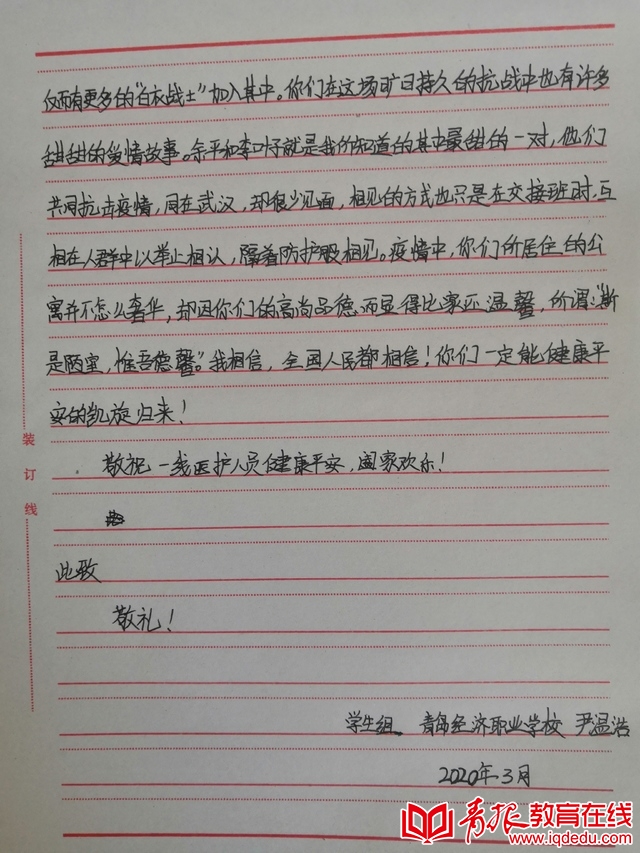 仅而有更多的“白衣战士”加入其中。你们在这场旷日持久的抗战中也有许多
甜甜的爱情故事。余平和李叶子就是我们知道的其中最甜的一对，他们
共同抗击疫情，同在武汉，却很少见面，相见的方式也只是在交接班时，互
相在人群中以举止相认，隔着防护服相见。疫情中，你们所居住的公
寓并不怎么奢华，却因你们的高尚品德而显得比家还温馨，所谓：“斯
是陋室，惟吾德馨”。我相信，全国人民都相信！你们一定能健康平
安的凯旋归来！
敬祝一线医护人员健康平安，阖家欢乐！
此致
敬礼！
学生组 青岛经济职业学校 尹温浩
2020年3月
装订线
青报教育在线
www.iqdedu.com